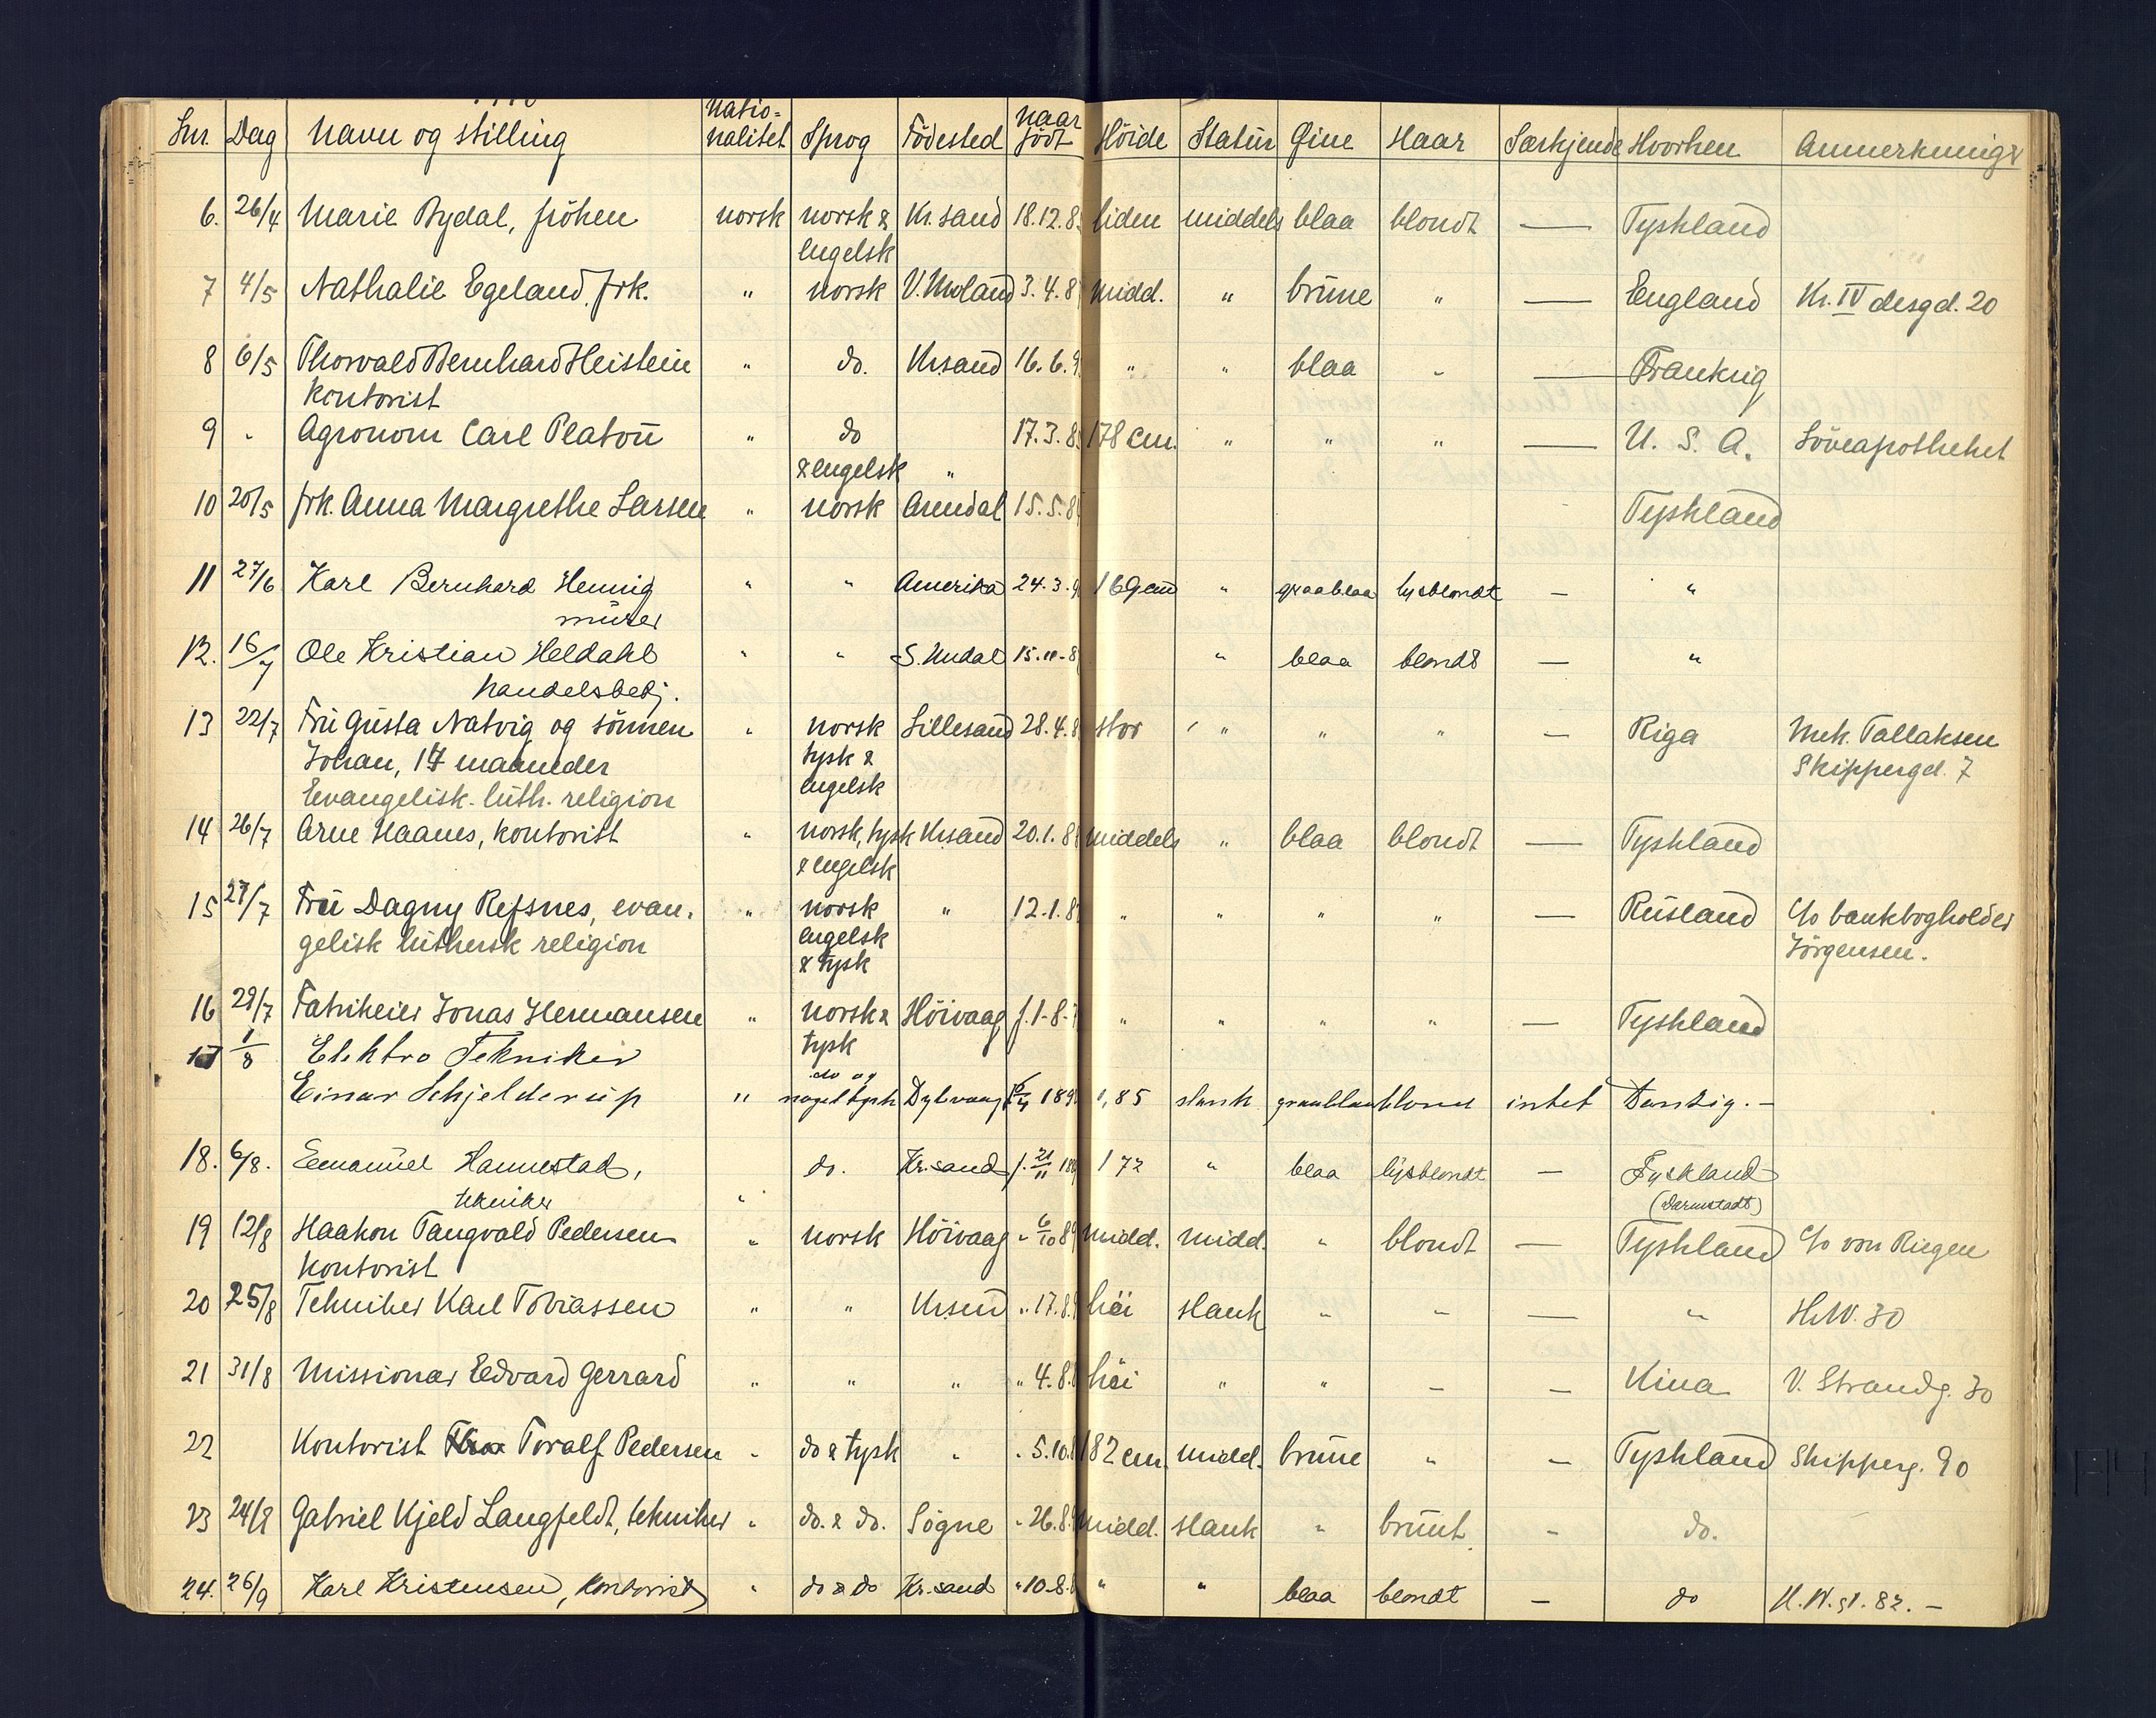 Lnr. Dag Navn og stilling Natio- nalitet Sprog Födested Naar född Höide Statur Øine Haar Særkjende Hvorhen Anmerkninger
6. 26/4 Marie Rydal, fröken norsk norsk & Kr.sand 18.12.8 liden middels blaa blondt — Tyskland
engelsk
7 4/5 Nathalie Egeland, frk. " norsk V. Moland 3.4.8 Midd. " brune " — England Kr. IV desgd. 20
8 6/5 Thorvald Bernhard Heistein " do. Krsand 16.6.9 " " blaa " — Frankrig
kontorist
9 " Agronom Carl Platou " do 17.3.8 178 cm. " " " — U. S. A. Löveapotheket
& engelsk "
10 20/5 frk. Anna Margrethe Larsen " norsk Arendal 15.5.8 Tyskland
11 27/6 Karl Bernhard Hennig " " Amerika 24.3.9 169 cm " graablaa lysblondt — "
murer
12. 16/7 Ole Kristian Heldahl " " S. Undal 15.11.8 " blaa blondt — "
handelsbetj.
13 22/7 Fru Gusta Natvig og sönnen " norsk Lillesand 28.4.8 stor " " " — Riga Mek. Tallaksen
Johan, 17 maaneder tysk & Skippergd. 7
Evangelisk. luth. religion engelsk
14 26/7 Arne Haanes, kontorist " norsk, tysk Krsand 20.1.8 middels " blaa blondt — Tyskland
& engelsk
15 27/7 Fru Dagny Refsnes, evan- " norsk " 12.1.8 " " " " — Rusland c/o bankbogholder
gelisk luthersk religion engelsk Jörgensen.
& tysk
16 29/7 Fabrikeier Jonas Hermansen " norsk & Höivaag f. 1-8- " " " " — Tyskland
tysk
17 1/8 Elektro Tekniker do og
Einar Schjelderup " noget tysk Dybvaag 189 1,85 slank graablaa blond intet Danzig. —
18. 6/8. Emanuel Hannestad, do. Kr.sand f. 21/11 18 172 " blaa lysblondt — Tyskland
tekniker " (Darmstadt)
19 12/8 Haakon Tangvald Pedersen " norsk Höivaag " 6/10 8 midd. midd. " blondt — Tyskland c/o von Riegen
kontorist
20 25/8 Tekniker Karl Tobiassen " " Krsand " 17.8. höi slank " " — " H.W. 30
21 31/8 Missionær Edvard Gerrard " " " " 4.8. höi " " — — Kina V. Strandg. 30
22 Kontorist Toralf Pedersen " do & tysk " " 5.10. 182 cm. midd. brune " — Tyskland Skipperg. 90
23 24/9 Gabriel Kjeld Langfeldt, tekniker " do. & do. Sögne " 26.8. midd. slank " brunt " do.
24. 26/9 Karl Kristensen, kontorist " do & do Kr.sand " 10.8. " " blaa blondt — do H.W.gt. 82. —